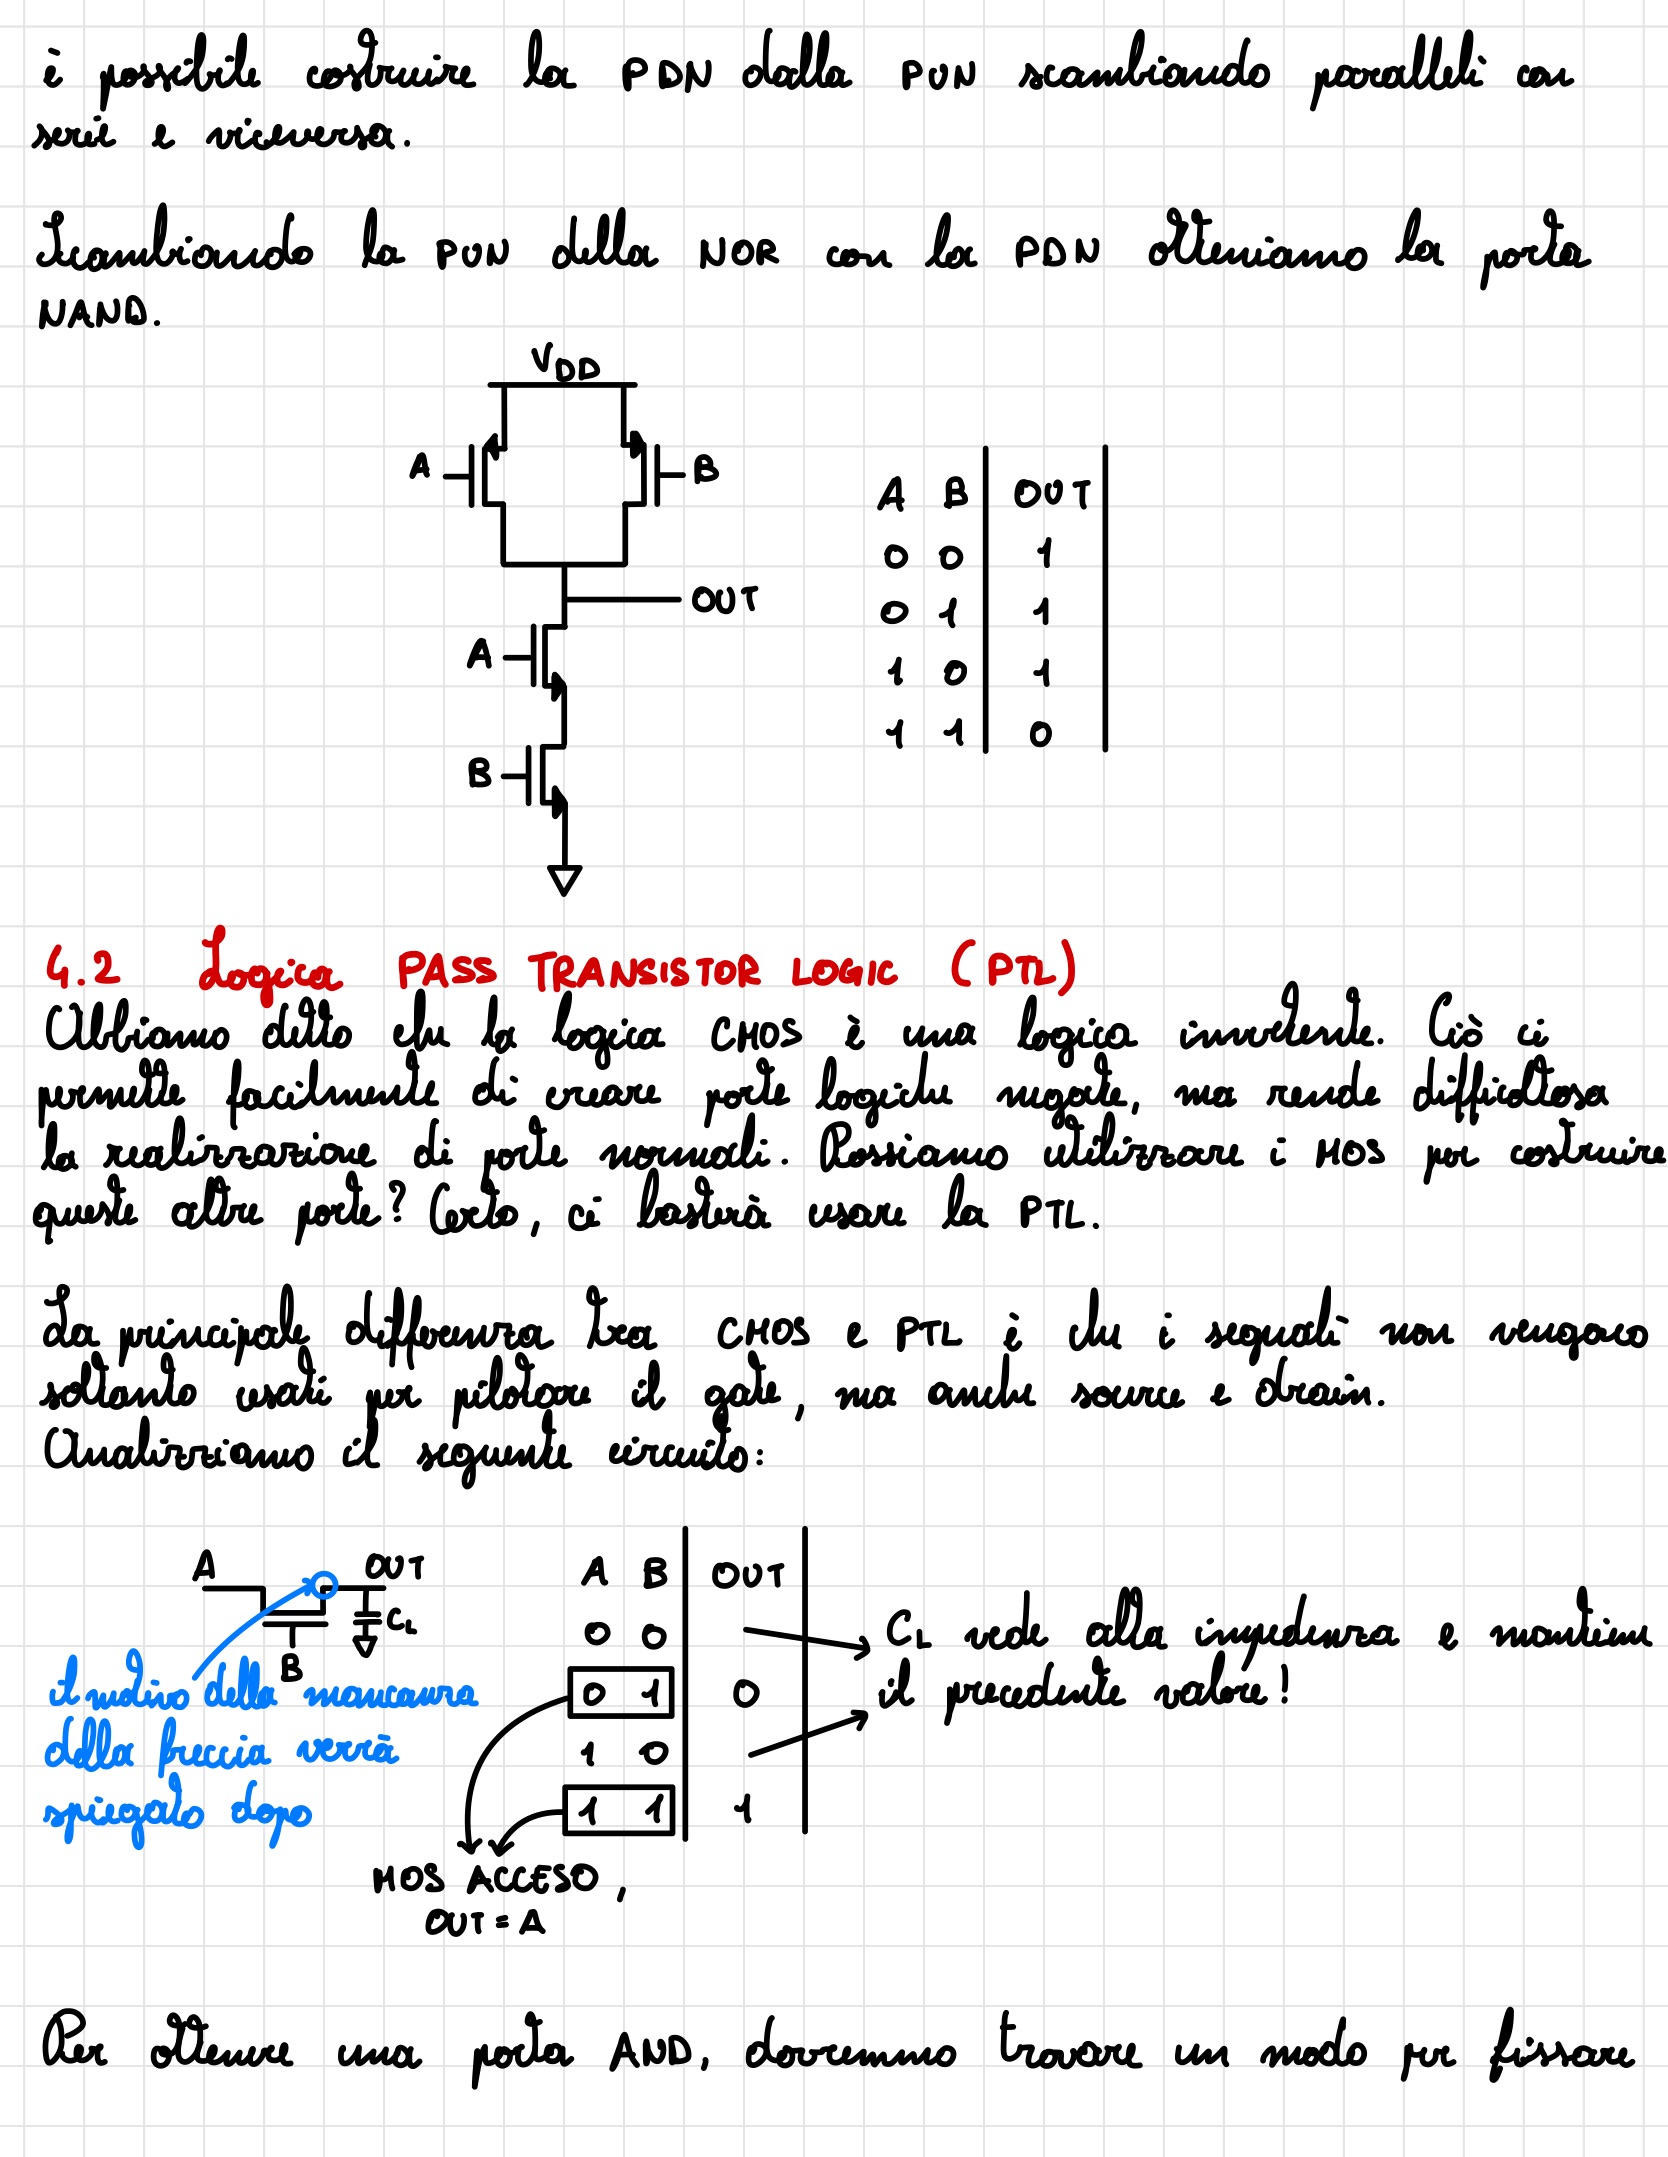 è possibile costruire la PDN dalla PUN scambiando paralleli con
serie e viceversa.
Scambiando la PUN della NOR con la PDN otteniamo la porta
NAND.
VDD
A
B
OUT
A
B
A B OUT
0 0 1
0 1 1
1 0 1
1 1 0
4.2 Logica PASS TRANSISTOR LOGIC (PTL)
Abbiamo detto che la logica CMOS è una logica invertente. Ciò ci
permette facilmente di creare porte logiche negate, ma rende difficoltosa
la realizzazione di porte normali. Possiamo utilizzare i MOS per costruire
queste altre porte? Certo, ci basterà usare la PTL.
La principale differenza tra CMOS e PTL è che i segnali non vengono
soltanto usati per pilotare il gate, ma anche source e drain.
Analizziamo il seguente circuito:
A
OUT
CL
B
il motivo della mancanza
della freccia verrà
spiegato dopo
A B OUT
0 0
0 1 0
1 0
1 1 1
CL vede alta impedenza e mantiene
il precedente valore!
MOS ACCESO,
OUT = A
Per ottenere una porta AND, dovremmo trovare un modo per fissare